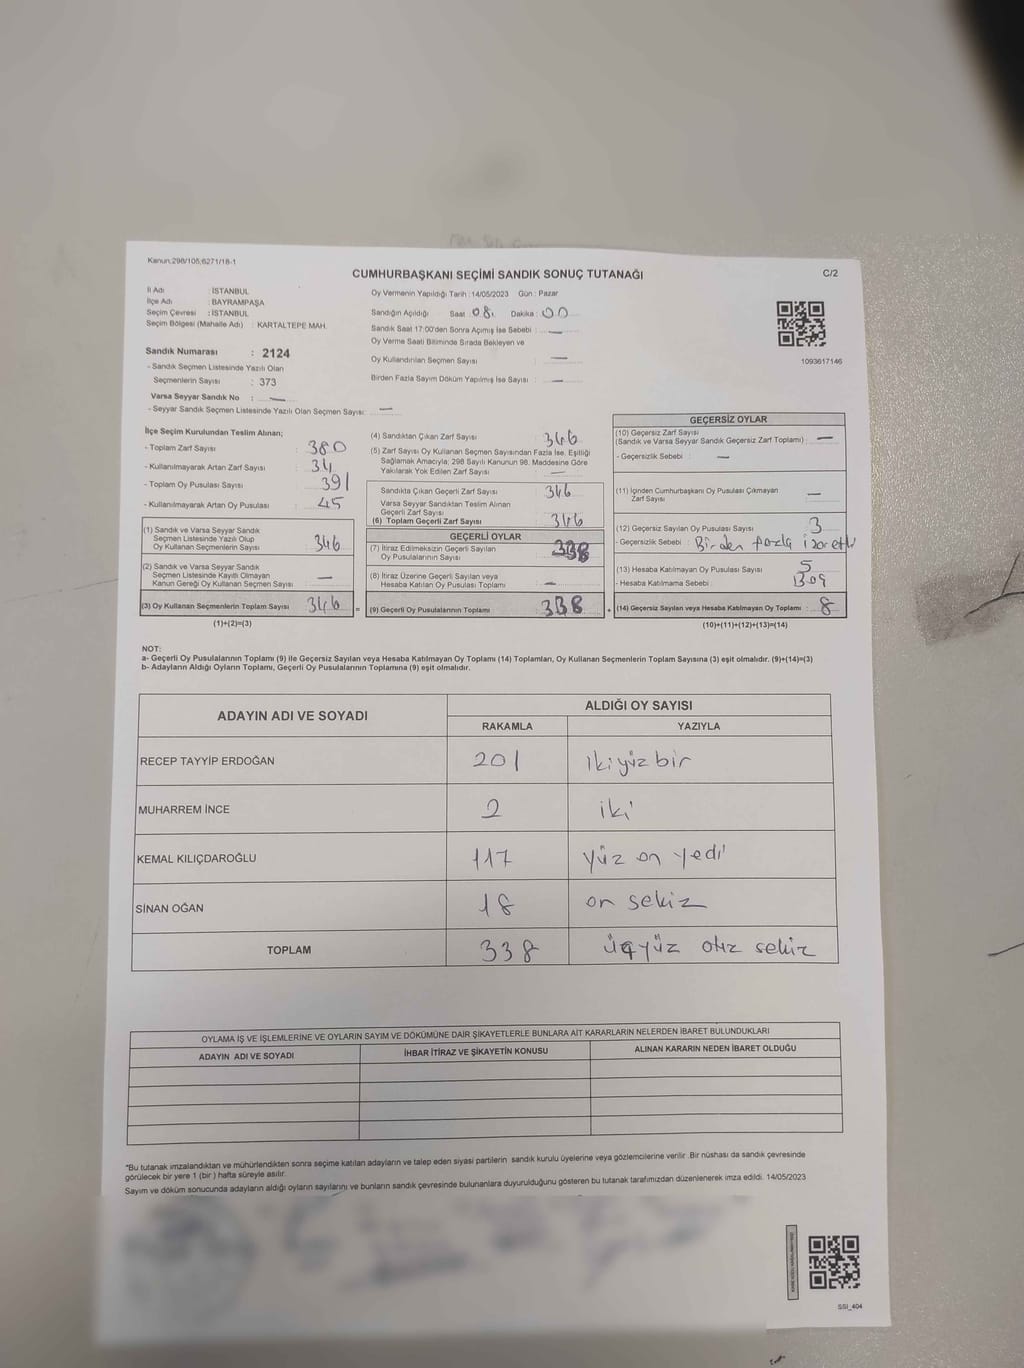 Kanun:298/105;6271/18-1
CUMHURBAŞKANI SEÇİMİ SANDIK SONUÇ TUTANAĞI
C/2
İl Adı : İSTANBUL
İlçe Adı : BAYRAMPAŞA
Seçim Çevresi : İSTANBUL
Seçim Bölgesi (Mahalle Adı) : KARTALTEPE MAH.
Oy Vermenin Yapıldığı Tarih : 14/05/2023 Gün : Pazar
Sandığın Açıldığı Saat : 08 Dakika : 00
Sandık Saat 17:00'den Sonra Açılmış İse Sebebi : —
Oy Verme Saati Bitiminde Sırada Bekleyen ve
Oy Kullandırılan Seçmen Sayısı : —
Birden Fazla Sayım Döküm Yapılmış İse Sayısı : —
1093617146
Sandık Numarası : 2124
- Sandık Seçmen Listesinde Yazılı Olan
Seçmenlerin Sayısı : 373
Varsa Seyyar Sandık No : —
- Seyyar Sandık Seçmen Listesinde Yazılı Olan Seçmen Sayısı: —
İlçe Seçim Kurulundan Teslim Alınan;
- Toplam Zarf Sayısı : 380
- Kullanılmayarak Artan Zarf Sayısı : 34
- Toplam Oy Pusulası Sayısı : 391
- Kullanılmayarak Artan Oy Pusulası : 45
(1) Sandık ve Varsa Seyyar Sandık
Seçmen Listesinde Yazılı Olup
Oy Kullanan Seçmenlerin Sayısı : 346
(2) Sandık ve Varsa Seyyar Sandık
Seçmen Listesinde Kayıtlı Olmayan
Kanun Gereği Oy Kullanan Seçmen Sayısı : —
(3) Oy Kullanan Seçmenlerin Toplam Sayısı : 346
(1)+(2)=(3)
(4) Sandıktan Çıkan Zarf Sayısı : 346
(5) Zarf Sayısı Oy Kullanan Seçmen Sayısından Fazla İse, Eşitliği
Sağlamak Amacıyla; 298 Sayılı Kanunun 98. Maddesine Göre
Yakılarak Yok Edilen Zarf Sayısı : —
Sandıkta Çıkan Geçerli Zarf Sayısı : 346
Varsa Seyyar Sandıktan Teslim Alınan
Geçerli Zarf Sayısı
(6) Toplam Geçerli Zarf Sayısı : 346
GEÇERLİ OYLAR
(7) İtiraz Edilmeksizin Geçerli Sayılan
Oy Pusulalarının Sayısı : 338
(8) İtiraz Üzerine Geçerli Sayılan veya
Hesaba Katılan Oy Pusulası Toplamı : —
(9) Geçerli Oy Pusulalarının Toplamı : 338
GEÇERSİZ OYLAR
(10) Geçersiz Zarf Sayısı
(Sandık ve Varsa Seyyar Sandık Geçersiz Zarf Toplamı) : —
- Geçersizlik Sebebi : —
(11) İçinden Cumhurbaşkanı Oy Pusulası Çıkmayan
Zarf Sayısı : —
(12) Geçersiz Sayılan Oy Pusulası Sayısı : 3
- Geçersizlik Sebebi : Birden fazla
(13) Hesaba Katılmayan Oy Pusulası Sayısı : 5
- Hesaba Katılmama Sebebi :
(14) Geçersiz Sayılan veya Hesaba Katılmayan Oy Toplamı : 8
(10)+(11)+(12)+(13)=(14)
NOT:
a- Geçerli Oy Pusulalarının Toplamı (9) ile Geçersiz Sayılan veya Hesaba Katılmayan Oy Toplamı (14) Toplamları, Oy Kullanan Seçmenlerin Toplam Sayısına (3) eşit olmalıdır. (9)+(14)=(3)
b- Adayların Aldığı Oyların Toplamı, Geçerli Oy Pusulalarının Toplamına (9) eşit olmalıdır.
ADAYIN ADI VE SOYADI
ALDIĞI OY SAYISI
RAKAMLA YAZIYLA
RECEP TAYYİP ERDOĞAN 201 ikiyüz bir
MUHARREM İNCE 2 iki
KEMAL KILIÇDAROĞLU 117 yüz on yedi
SİNAN OĞAN 18 on sekiz
TOPLAM 338 üçyüz otuz sekiz
OYLAMA İŞ VE İŞLEMLERİNE VE OYLARIN SAYIM VE DÖKÜMÜNE DAİR ŞİKAYETLERLE BUNLARA AİT KARARLARIN NELERDEN İBARET BULUNDUKLARI
ADAYIN ADI VE SOYADI İHBAR İTİRAZ VE ŞİKAYETİN KONUSU ALINAN KARARIN NEDEN İBARET OLDUĞU
*Bu tutanak imzalandıktan ve mühürlendikten sonra seçime katılan adayların ve talep eden siyasi partilerin sandık kurulu üyelerine veya gözlemcilerine verilir. Bir nüshası da sandık çevresinde
görülecek bir yere 1 (bir) hafta süreyle asılır.
Sayım ve döküm sonucunda adayların aldığı oyların sayılarını ve bunların sandık çevresinde bulunanlara duyurulduğunu gösteren bu tutanak tarafımızdan düzenlenerek imza edildi. 14/05/2023
SSİ_404